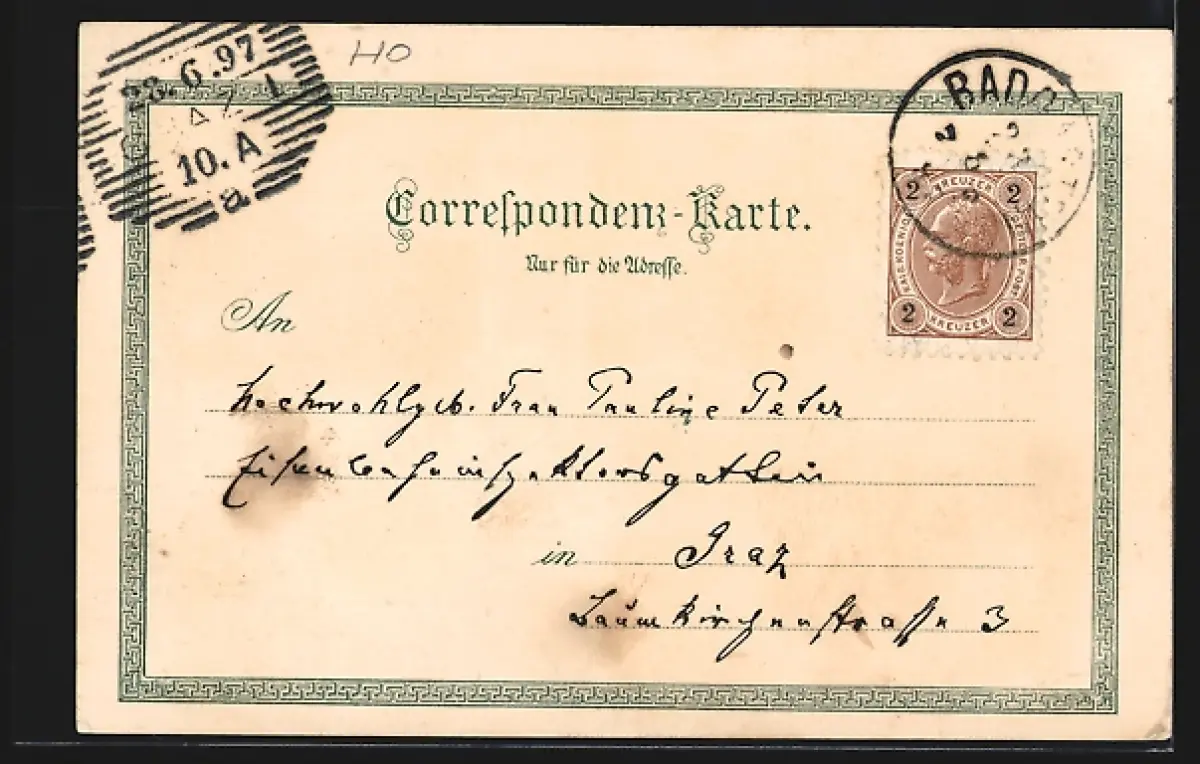 HO
28.6.97
10.A
a
BADG
Correspondenz-Karte.
Nur für die Adresse.
2 KREUZER 2
2 KREUZER 2
An
Hochwohlgeb. Frau Pauline Peter
Eisenbahninspektorsgattin
in Graz
Baumkircherstrasse 3